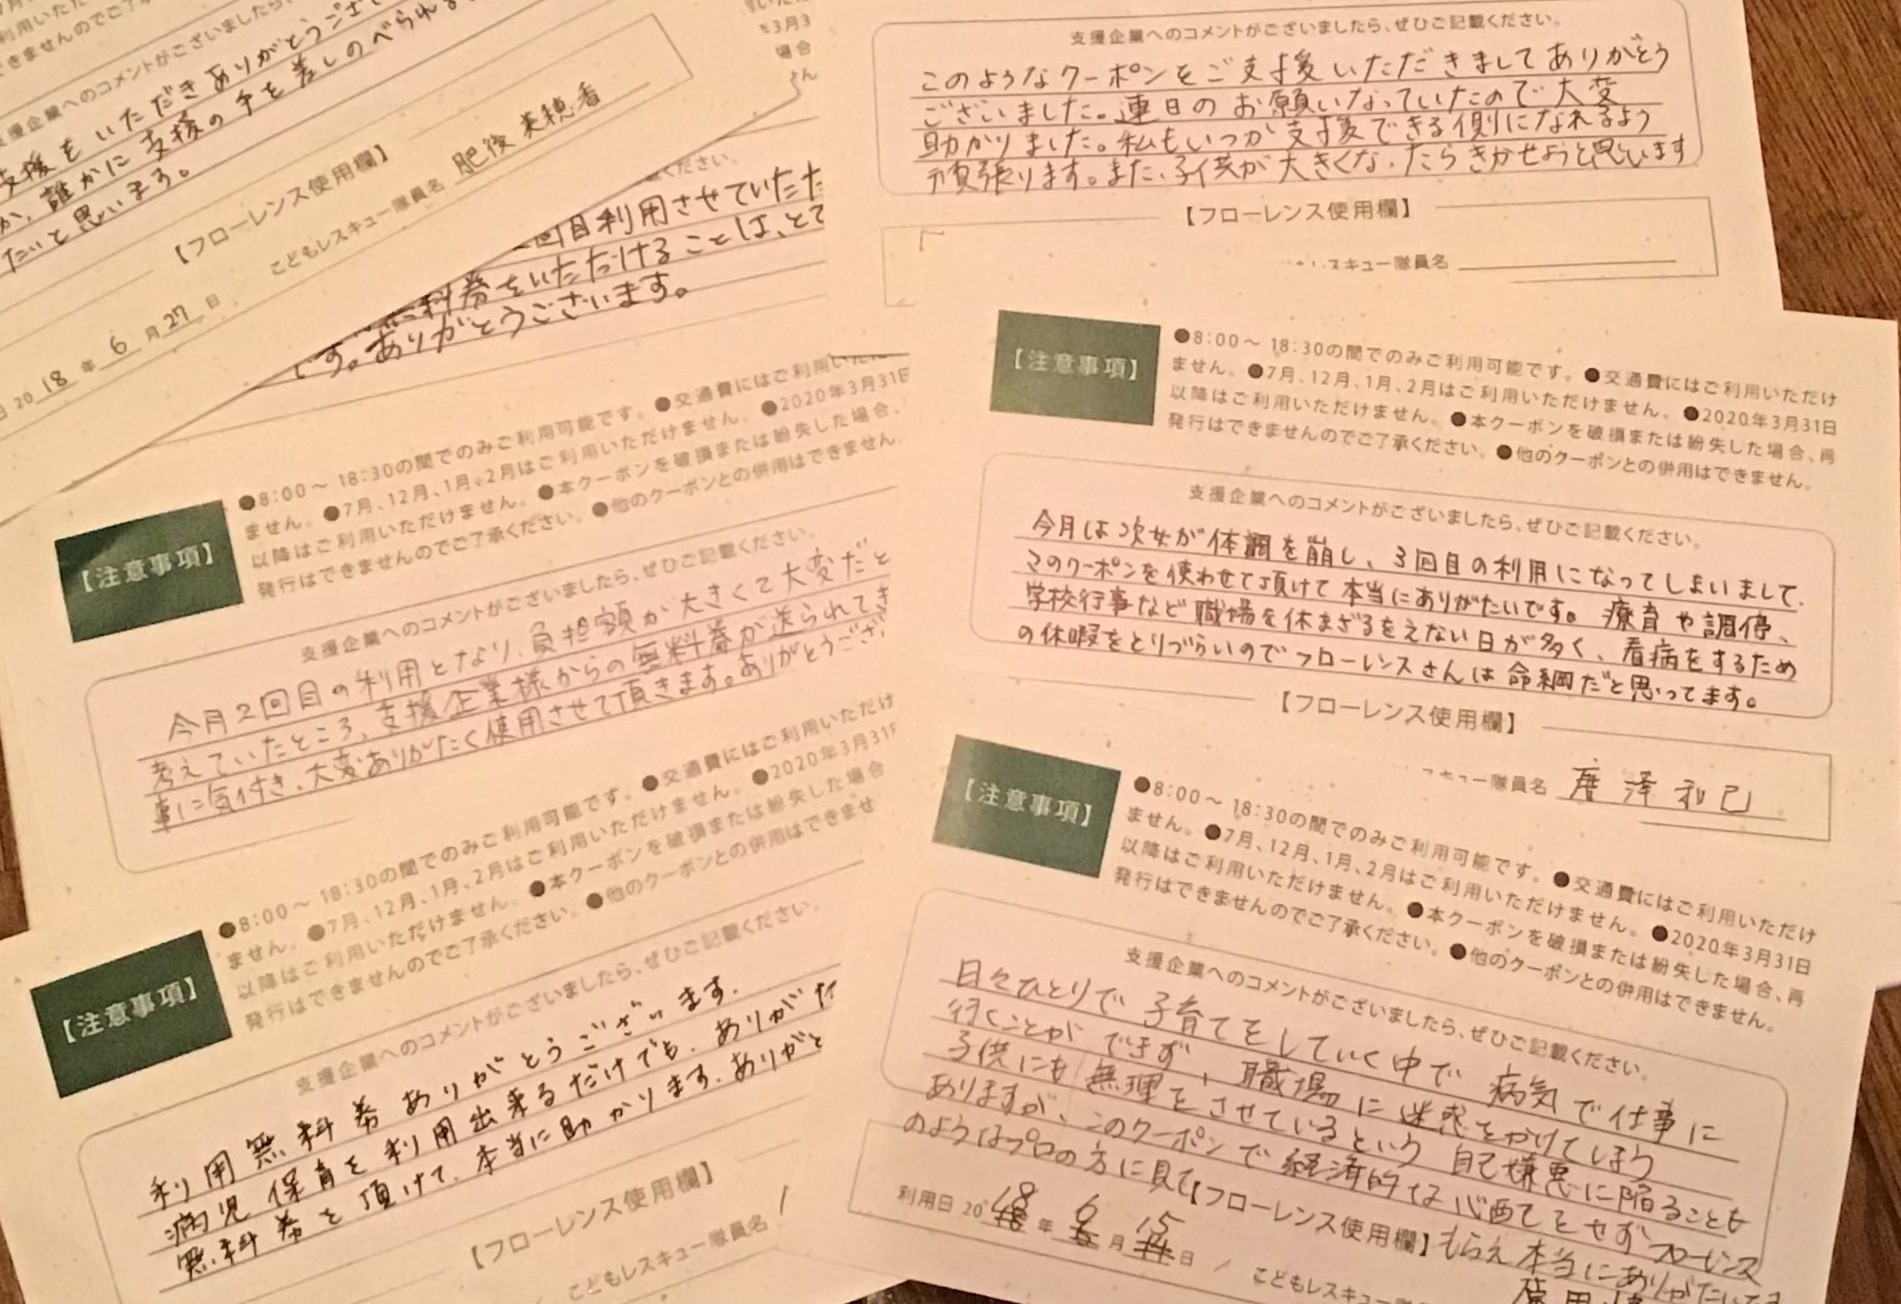 用いただけ
きませんのでご了承ください
支援企業へのコメントがございましたら、
支援をいただきありがとうござ
か、誰かに支援の手を差しのべられる
たいと思います。
【フローレンス使用欄】
こどもレスキュー隊員名 肥後 美穂香
日 2018年6月27日
ください。
回目利用させていただ
無料券をいただけることは、とて
です。ありがとうございます。
【注意事項】
●8:00〜18:30の間でのみご利用可能です。●交通費にはご利用いただけ
ません。●7月、12月、1月、2月はご利用いただけません。●2020年3月31日
以降はご利用いただけません。●本クーポンを破損または紛失した場合、
発行はできませんのでご了承ください。●他のクーポンとの併用はできません。
支援企業へのコメントがございましたら、ぜひご記載ください。
今月2回目の利用となり、負担額が大きくて大変だと
考えていたところ、支援企業様からの無料券が送られてき
事に気付き、大変ありがたく使用させて頂きます。ありがとうござ
【注意事項】
●8:00〜18:30の間でのみご利用可能です。●交通費にはご利用いただけ
ません。●7月、12月、1月、2月はご利用いただけません。●2020年3月31日
以降はご利用いただけません。●本クーポンを破損または紛失した場合
発行はできませんのでご了承ください。●他のクーポンとの併用はできませ
支援企業へのコメントがございましたら、ぜひご記載ください。
利用無料券ありがとうございます。
病児保育を利用出来るだけでも、ありがた
無料券を頂けて、本当に助かります。ありがと
【フローレンス使用欄】
こどもレスキュー隊員名
支援企業へのコメントがございましたら、ぜひご記載ください。
このようなクーポンをご支援いただきましてありがとう
ございました。連日のお願いなっていたので大変
助かりました。私もいつか支援できる側になれるよう
頑張ります。また、子供が大きくなったらきかせようと思います
【フローレンス使用欄】
レスキュー隊員名
【注意事項】
●8:00〜18:30の間でのみご利用可能です。●交通費にはご利用いただけ
ません。●7月、12月、1月、2月はご利用いただけません。●2020年3月31日
以降はご利用いただけません。●本クーポンを破損または紛失した場合、再
発行はできませんのでご了承ください。●他のクーポンとの併用はできません。
支援企業へのコメントがございましたら、ぜひご記載ください。
今月は次女が体調を崩し、3回目の利用になってしまいまして、
このクーポンを使わせて頂けて本当にありがたいです。療育や調停、
学校行事など職場を休まざるをえない日が多く、看病をするため
の休暇をとりづらいのでフローレンスさんは命綱だと思ってます。
【フローレンス使用欄】
スキュー隊員名 唐澤和己
【注意事項】
●8:00〜18:30の間でのみご利用可能です。●交通費にはご利用いただけ
ません。●7月、12月、1月、2月はご利用いただけません。●2020年3月31日
以降はご利用いただけません。●本クーポンを破損または紛失した場合、再
発行はできませんのでご了承ください。●他のクーポンとの併用はできません。
支援企業へのコメントがございましたら、ぜひご記載ください。
日々ひとりで子育てをしていく中で病気で仕事に
行くことができず、職場に迷惑をかけてしまう
子供にも無理をさせているという自己嫌悪に陥ることも
ありますが、このクーポンで経済的な心配もせずフローレンス
のようなプロの方に見て もらえ本当にありがたいです
【フローレンス使用欄】
利用日 2018年6月15日
こどもレスキュー隊員名